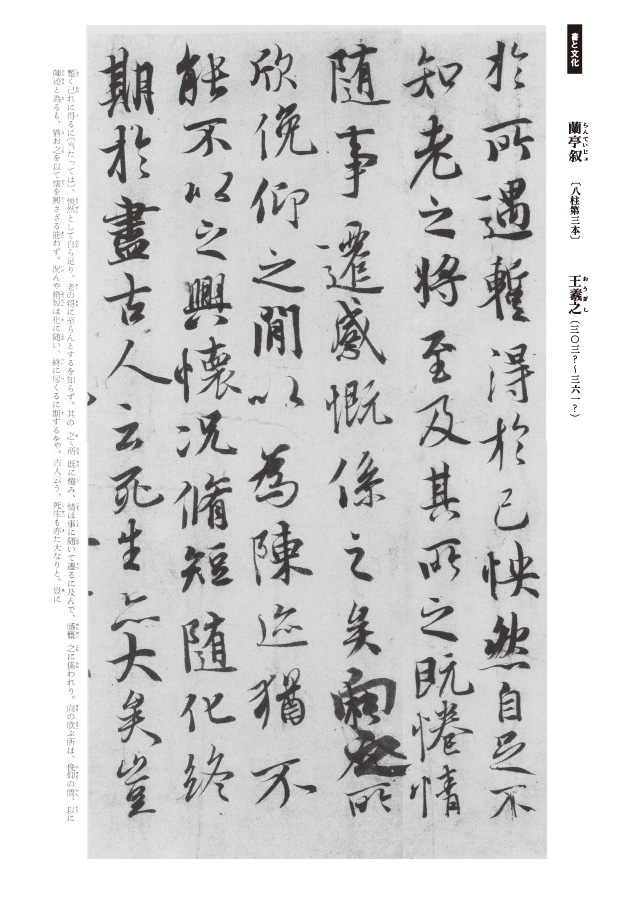 書と文化
蘭亭叙 〔八柱第三本〕 王羲之（三〇三？〜三六一？）
らんていじょ おうぎし
於所遇蹔得於己怏然自足不
知老之将至及其所之既惓情
随事遷感慨係之矣向之所
欣俛仰之閒以為陳迹猶不
能不以之興懷況脩短随化終
期於盡古人云死生亦大矣豈
蹔く己れに得るに〔当たっては〕、怏然として自ら足り、老の将に至らんとするを知らず。其の之く所既に惓み、情は事に随いて遷るに及んで、感慨之に係われり。向の欣ぶ所は、俛仰の間、以に
陳迹と為るも、猶お之を以て懐を興さざる能わず。況んや脩短は化に随い、終に尽くるに期するをや。古人云う、死生も亦た大なりと。豈に